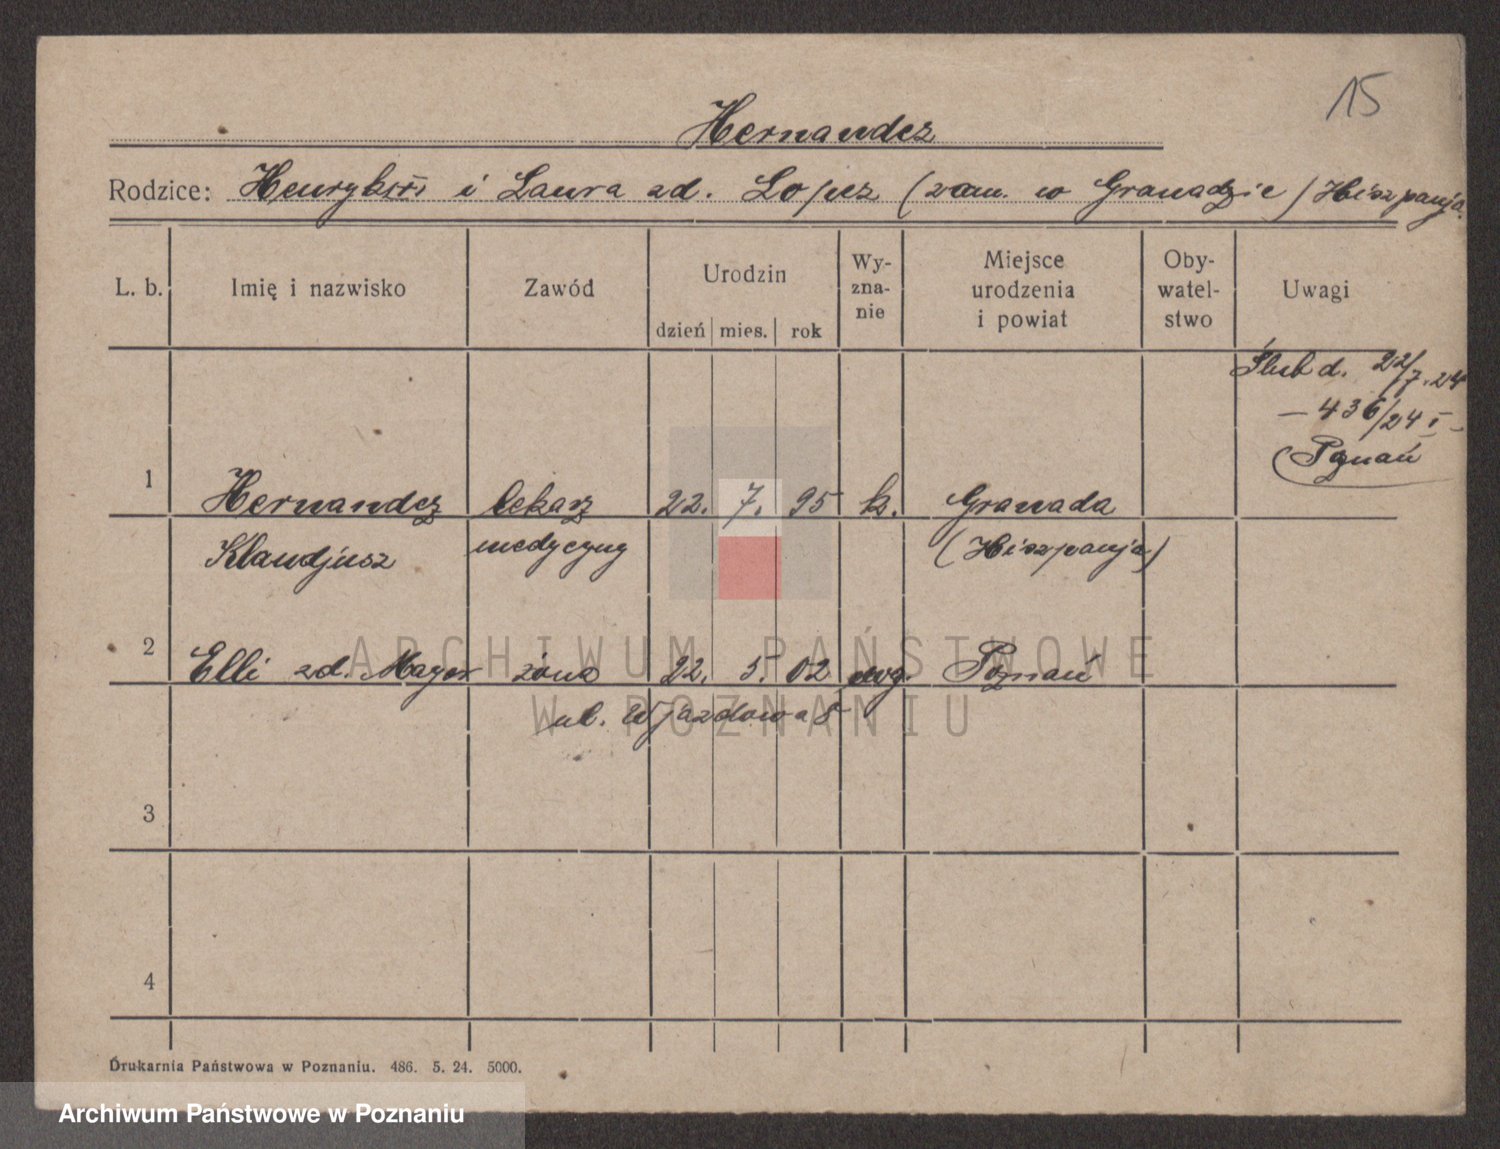 15
Hernandez
Rodzice: Henryk i Laura zd. Lopez (zam. w Granadzie) Hiszpanja
L. b. Imię i nazwisko Zawód Urodzin dzień mies. rok Wy-zna-nie Miejsce urodzenia i powiat Oby-watel-stwo Uwagi
Ślub d. 22/7.24
— 436/24 I —
(Poznań
1 Hernandez lekarz 22. 7. 95 k. Granada
Klaudjusz medycyny (Hiszpanja)
2 Elli zd. Mayer żona 22. 5. 02 ewg. Poznań
ul. Wjazdowa 8
3
4
ARCHIWUM PAŃSTWOWE
W POZNANIU
Drukarnia Państwowa w Poznaniu. 486. 5. 24. 5000.
Archiwum Państwowe w Poznaniu